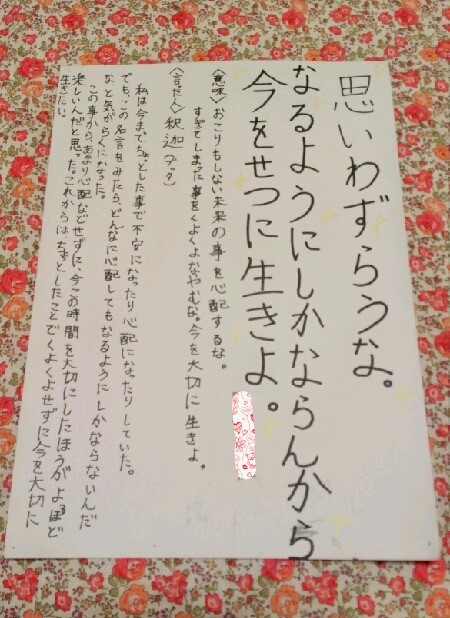 思いわずらうな。
なるようにしかならんから
今をせつに生きよ。
〈意味〉おこりもしない未来の事を心配するな。
すぎてしまった事をくよくよなやむな。今を大切に生きよ。
〈言った人〉釈迦(ブッタ)
私は今までちょっとした事で不安になったり心配になったりしていた。
でも、この名言をみたら、どんなに心配してもなるようにしかならないんだ
なと気がらくになった。
この事から、あまり心配などせずに、今この時間を大切にしたほうがよほど
楽しいんだと思った。これからはちょっとしたことでくよくよせずに今を大切に
生きたい。